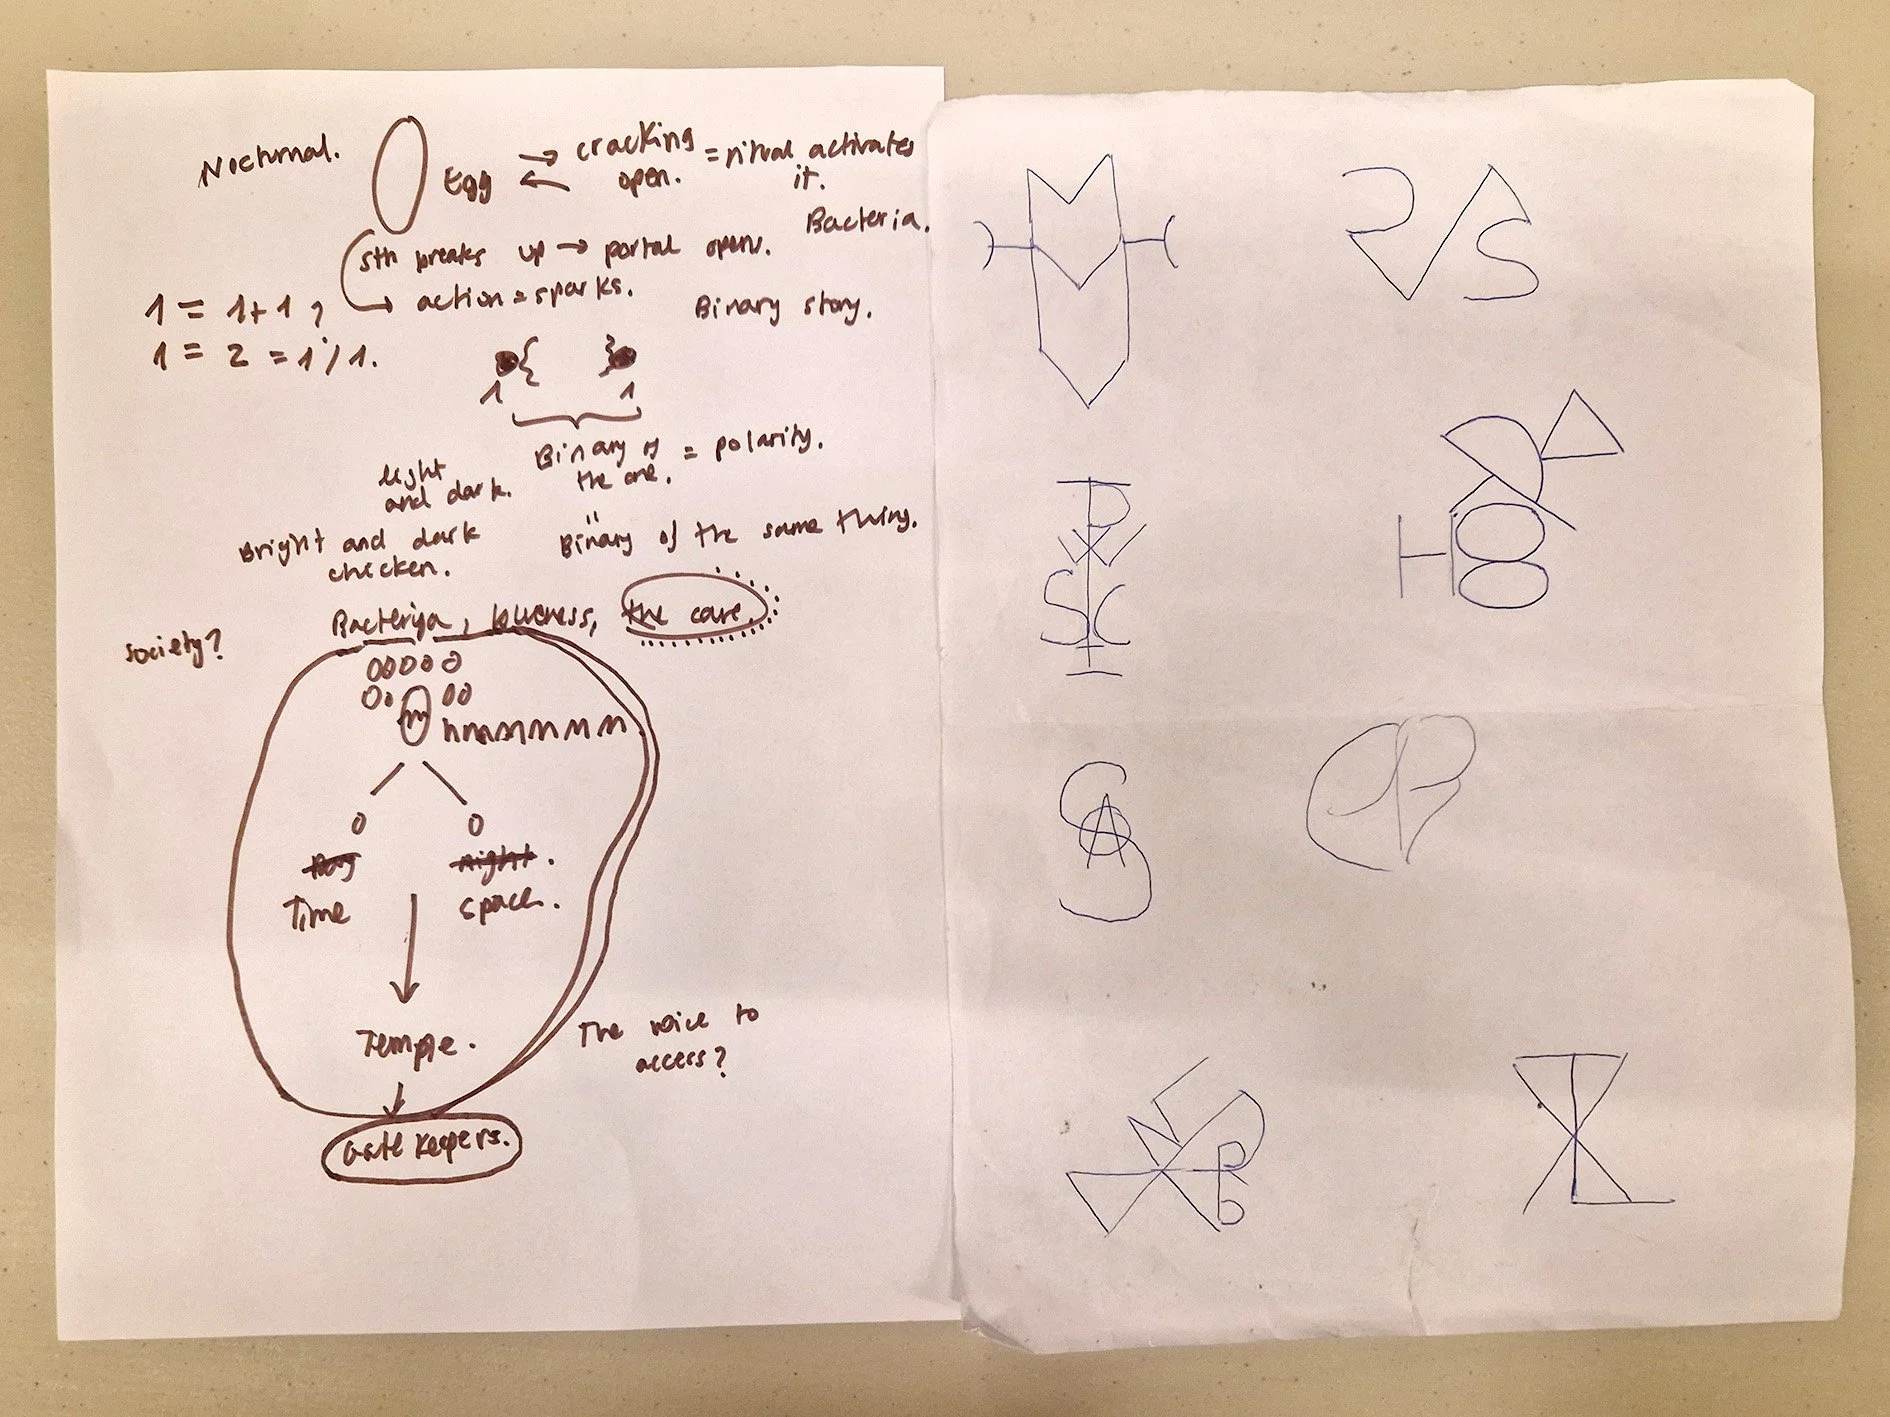 Nocturnal.
Egg
cracking open. = ritual activates it.
Bacteria.
sth breaks up → portal open.
→ action = sparks.
1 = 1+1 ?
1 = 2 = 1/1.
Binary story.
1 1
Binary of the one. = polarity.
light and dark.
Bright and dark chicken.
"
Binary of the same thing.
society?
Bacteriya, blueness, the cave.
Time
space.
Temple.
The voice to access?
Gate Keepers.